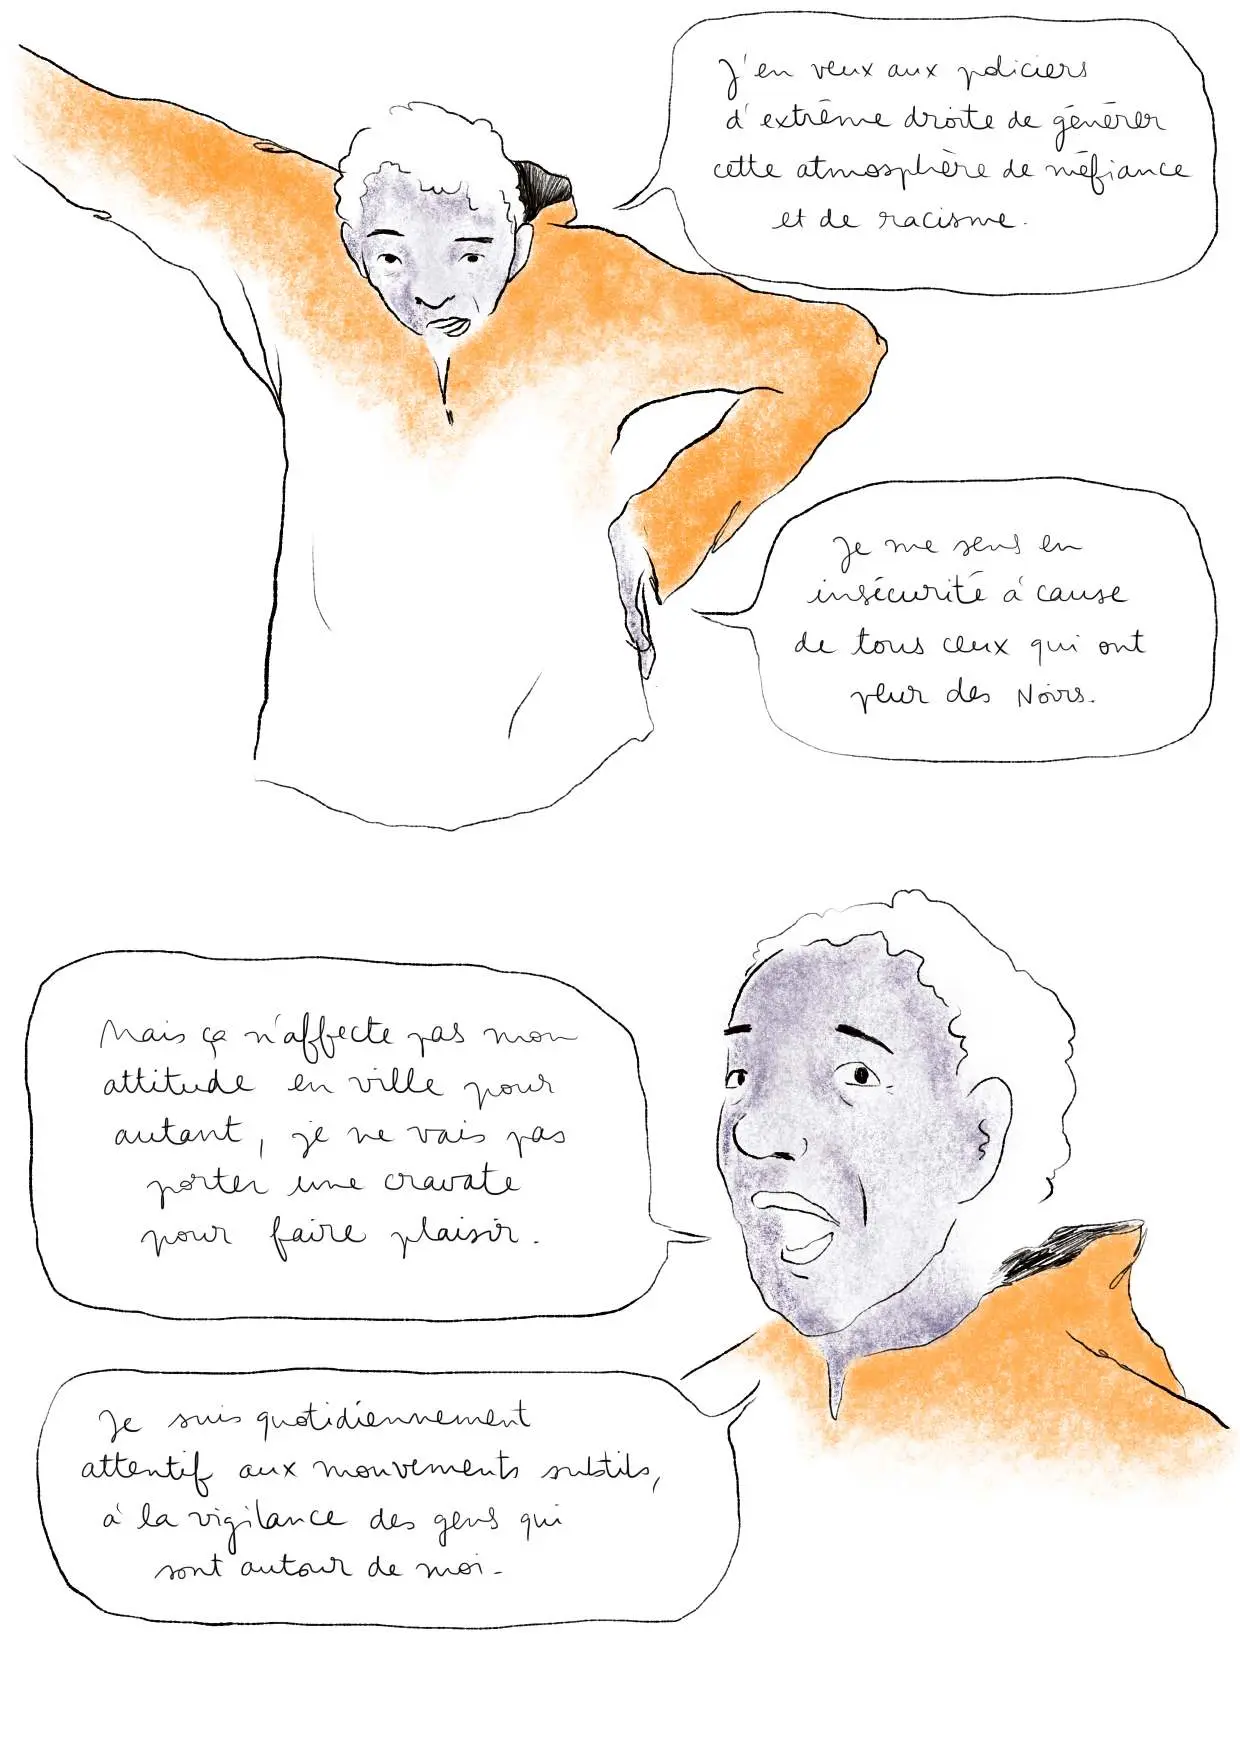 J'en veux aux policiers
d'extrême droite de générer
cette atmosphère de méfiance
et de racisme.
Je me sens en
insécurité à cause
de tous ceux qui ont
peur des Noirs.
Mais ça n'affecte pas mon
attitude en ville pour
autant, je ne vais pas
porter une cravate
pour faire plaisir.
Je suis quotidiennement
attentif aux mouvements subtils,
à la vigilance des gens qui
sont autour de moi.